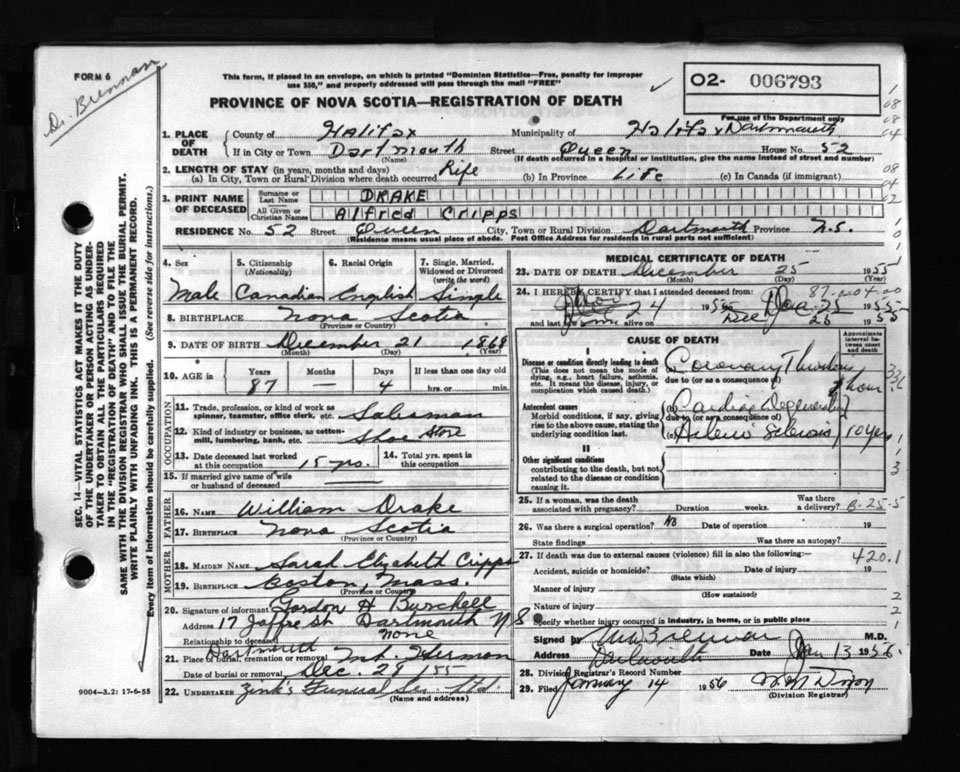 FORM 6
Dr. Brennan
This form, if placed in an envelope, on which is printed "Dominion Statistics—Free, penalty for improper
use $50," and properly addressed will pass through the mail "FREE"
02- 006793
For use of the Department only
PROVINCE OF NOVA SCOTIA—REGISTRATION OF DEATH
SEC. 14—VITAL STATISTICS ACT MAKES IT THE DUTY
OF THE UNDERTAKER OR PERSON ACTING AS UNDER-
TAKER TO OBTAIN ALL THE PARTICULARS REQUIRED
IN THE "REGISTRATION OF DEATH" AND TO FILE THE
SAME WITH THE DIVISION REGISTRAR WHO SHALL ISSUE THE BURIAL PERMIT.
WRITE PLAINLY WITH UNFADING INK. THIS IS A PERMANENT RECORD.
Every item of information should be carefully supplied. (See reverse side for instructions.)
9004—3.2: 17-6-55
1. PLACE OF DEATH County of Halifax Municipality of Halifax Dartmouth
If in City or Town Dartmouth (Name) Street Queen House No. 52
(If death occurred in a hospital or institution, give the name instead of street and number)
2. LENGTH OF STAY (in years, months and days)
(a) In City, Town or Rural Division where death occurred Life (b) In Province Life (c) In Canada (if immigrant)
3. PRINT NAME OF DECEASED Surname or Last Name DRAKE
All Given or Christian Names Alfred Cripps
RESIDENCE No. 52 Street Queen City, Town or Rural Division Dartmouth Province N.S.
(Residence means usual place of abode. Post Office Address for residents in rural parts not sufficient)
4. Sex Male
5. Citizenship (Nationality) Canadian
6. Racial Origin English
7. Single, Married, Widowed or Divorced (write the word) Single
8. BIRTHPLACE Nova Scotia
(Province or Country)
9. DATE OF BIRTH December 21 1868
(Month) (Day) (Year)
10. AGE in Years 87 Months — Days 4 If less than one day old
hrs. or min.
OCCUPATION
11. Trade, profession, or kind of work as spinner, teamster, office clerk, etc. Salesman
12. Kind of industry or business, as cotton-mill, lumbering, bank, etc. Shoe Store
13. Date deceased last worked at this occupation 15 yrs. 14. Total yrs. spent in this occupation
15. If married give name of wife or husband of deceased
FATHER
16. Name William Drake
17. Birthplace Nova Scotia
(Province or Country)
MOTHER
18. MAIDEN NAME Sarah Elizabeth Cripps
19. BIRTHPLACE Boston, Mass.
(Province or Country)
20. Signature of informant Gordon H Burchell
Address 17 Joffre St Dartmouth N S
Relationship to deceased None
21. Place of burial, cremation or removal Dartmouth Mt. Hermon
Date of burial or removal Dec. 28 1955
22. UNDERTAKER Zink's Funeral Ser. Ltd.
(Name and address)
MEDICAL CERTIFICATE OF DEATH
23. DATE OF DEATH December 25 1955
(Month) (Day) (Year)
24. I HEREBY CERTIFY that I attended deceased from:
24 1955 Dec 25 1955
and last saw alive on Dec 25 1955
CAUSE OF DEATH
Approximate interval between onset and death
I
Disease or condition directly leading to death
(This does not mean the mode of dying, e.g., heart failure, asthenia, etc. It means the disease, injury, or complication which caused death.)
Coronary Thrombosis
due to (or as a consequence of) 1 hour
Antecedent causes
Morbid conditions, if any, giving rise to the above cause, stating the underlying condition last.
(b) Cardiac Degeneration
due to (or as a consequence of)
(c) Arterio Sclerosis 10 yrs
II
Other significant conditions
contributing to the death, but not related to the disease or condition causing it.
25. If a woman, was the death associated with pregnancy? Duration weeks. Was there a delivery? B-25-5
26. Was there a surgical operation? No Date of operation 19
State findings Was there an autopsy?
27. If death was due to external causes (violence) fill in also the following:—
420.1
Accident, suicide or homicide? (State which) Date of injury 19
Manner of injury
(How sustained)
Nature of injury
Specify whether injury occurred in industry, in home, or in public place
Signed by Brennan M.D.
Address Dartmouth Date Jan 13 1956
28. Division Registrar's Record Number
29. Filed January 14 1956
(Division Registrar)